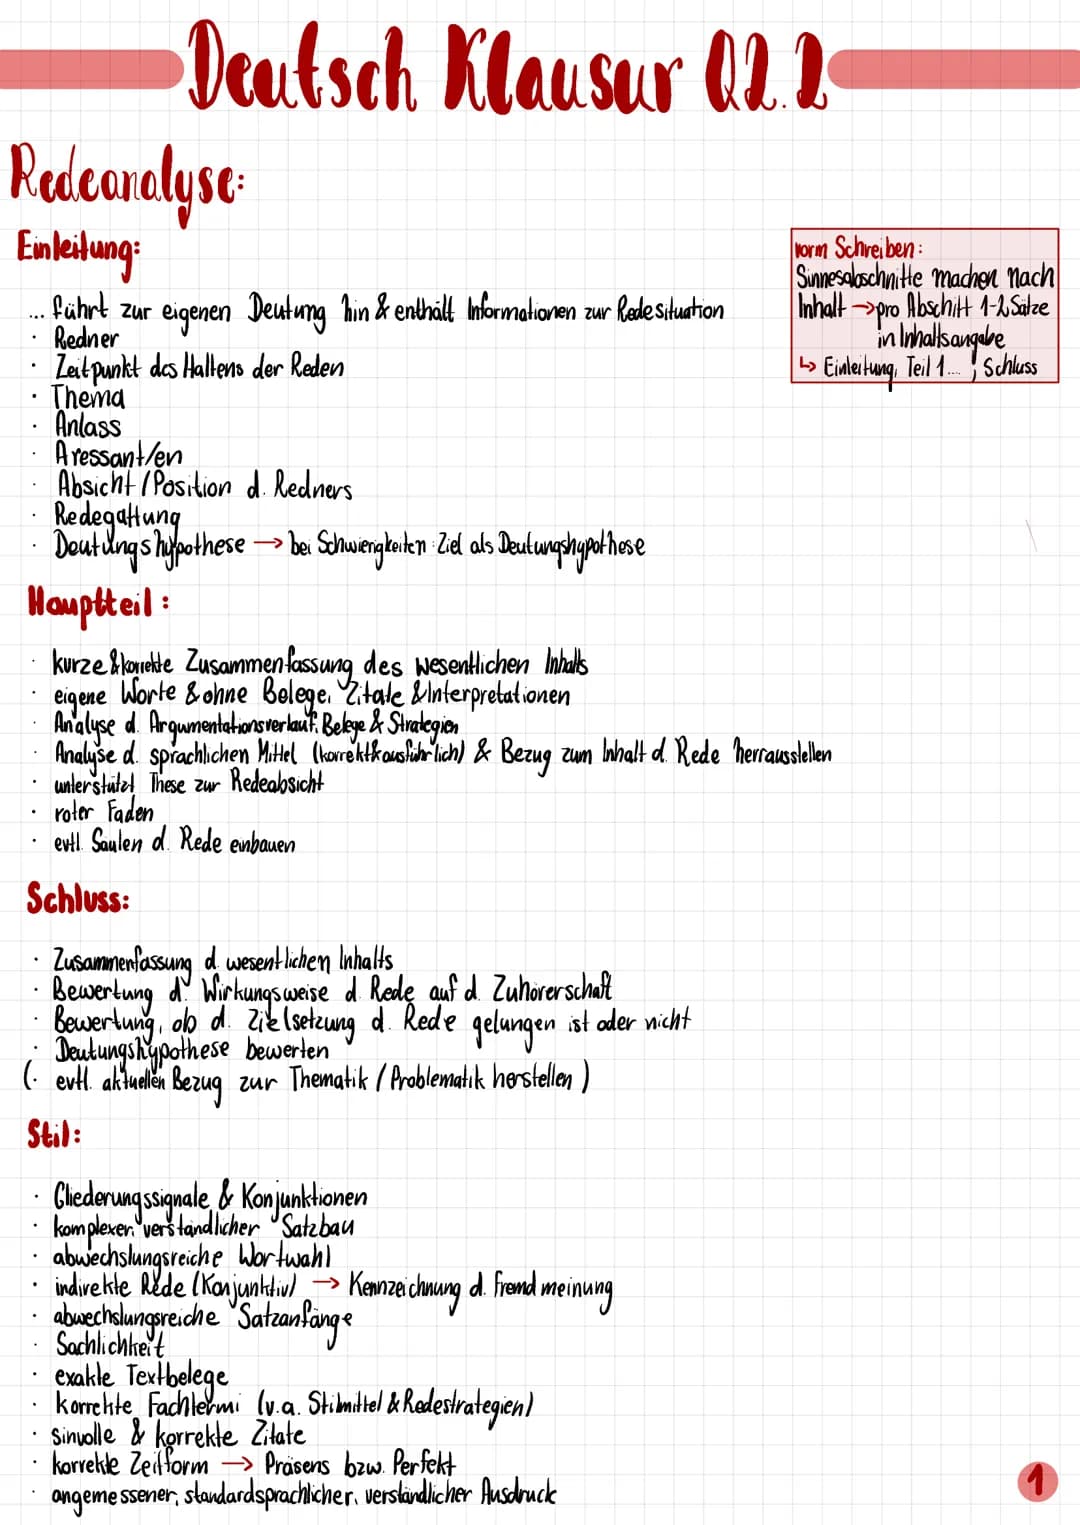 Deutsch Klausur Q2.2
Redeanalyse:
Einleitung:
... führt zur eigenen Deutung hin & enthält Informationen zur Redesituation
· Redner
· Zeitpunkt des Haltens der Reden
· Thema
· Anlass
· Aressant/en
· Absicht / Position d. Redners
· Redegattung
· Deutungshypothese → bei Schwierigkeiten: Ziel als Deutungshypothese
vorm Schreiben:
Sinnesabschnitte machen nach
Inhalt → pro Abschitt 1-2 Sätze
in Inhaltsangabe
↳ Einleitung, Teil 1...., Schluss
Hauptteil:
· kurze & korrekte Zusammenfassung des wesentlichen Inhalts
· eigene Worte & ohne Belege, Zitate & Interpretationen
· Analyse d. Argumentationsverlauf, Belege & Strategien
· Analyse d. sprachlichen Mittel (korrekt & ausführlich) & Bezug zum Inhalt d. Rede herrausstellen
· unterstützt These zur Redeabsicht
· roter Faden
· evtl. Säulen d. Rede einbauen
Schluss:
· Zusammenfassung d. wesentlichen Inhalts
· Bewertung d. Wirkungsweise d. Rede auf d. Zuhörerschaft
· Bewertung, ob d. Zielsetzung d. Rede gelungen ist oder nicht
· Deutungshypothese bewerten
(· evtl. aktuellen Bezug zur Thematik / Problematik herstellen )
Stil:
· Gliederungssignale & Konjunktionen
· komplexer, verständlicher Satzbau
· abwechslungsreiche Wortwahl
· indirekte Rede (Konjunktiv) → Kennzeichnung d. Fremdmeinung
· abwechslungsreiche Satzanfänge
· Sachlichkeit
· exakte Textbelege
· korrekte Fachtermi (v.a. Stilmittel & Redestrategien)
· sinvolle & korrekte Zitate
· korrekte Zeitform → Präsens bzw. Perfekt
· angemessener, standardsprachlicher, verständlicher Ausdruck
1